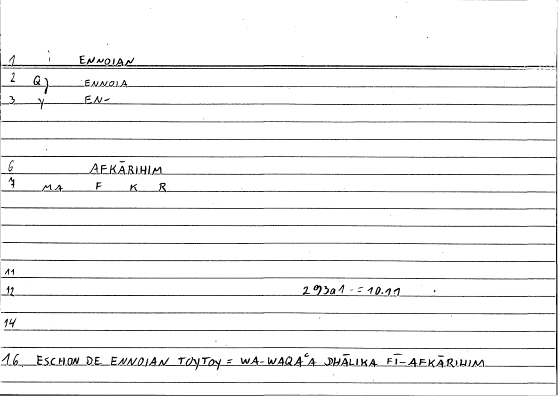 1 i ENNOIAN
2 Q) ENNOIA
3 y EN-
6 AFKĀRIHIM
7 MA F K R
11
12 293a1 = 10.11
14
16. ESCHON DE ENNOIAN TOYTOY = WA-WAQAʿA DHĀLIKA FĪ-AFKĀRIHIM